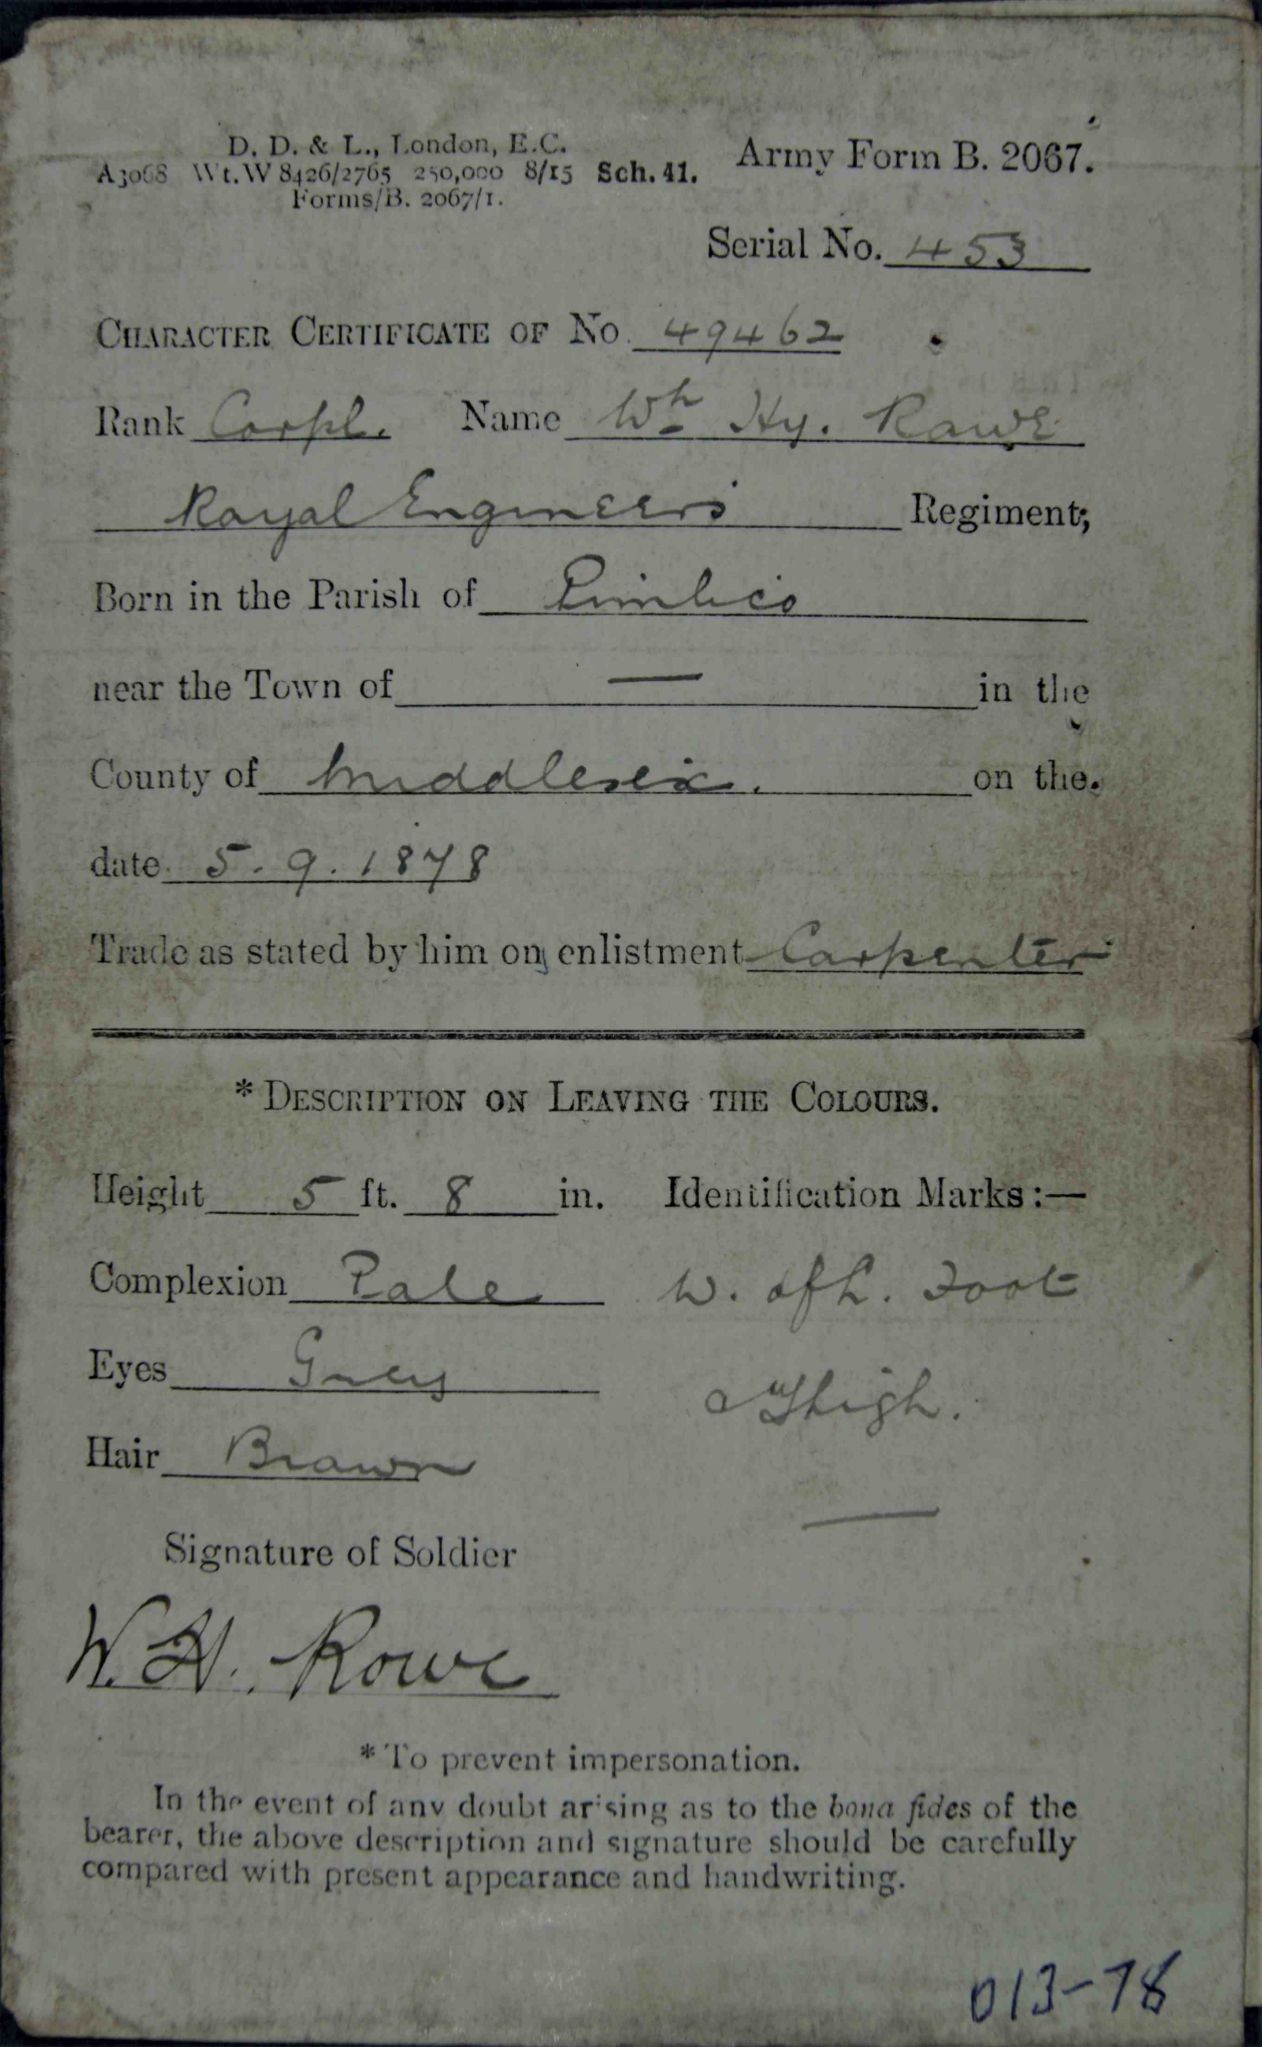 D. D. & L., London, E.C.
A3068 Wt. W 8426/2765 250,000 8/15 Sch. 41.
Forms/B. 2067/1.
Army Form B. 2067.
Serial No. 453
CHARACTER CERTIFICATE OF No. 49462
Rank Corpl. Name Wm Hy. Rowe
Royal Engineers Regiment,
Born in the Parish of Pimlico
near the Town of — in the
County of Middlesex. on the
date 5.9.1878
Trade as stated by him on enlistment Carpenter
*DESCRIPTION ON LEAVING THE COLOURS.
Height 5 ft. 8 in. Identification Marks :—
Complexion Pale W. of L. Foot
Eyes Grey & Thigh.
Hair Brown
Signature of Soldier
W. H. Rowe
*To prevent impersonation.
In the event of any doubt arising as to the bona fides of the
bearer, the above description and signature should be carefully
compared with present appearance and handwriting.
013-78